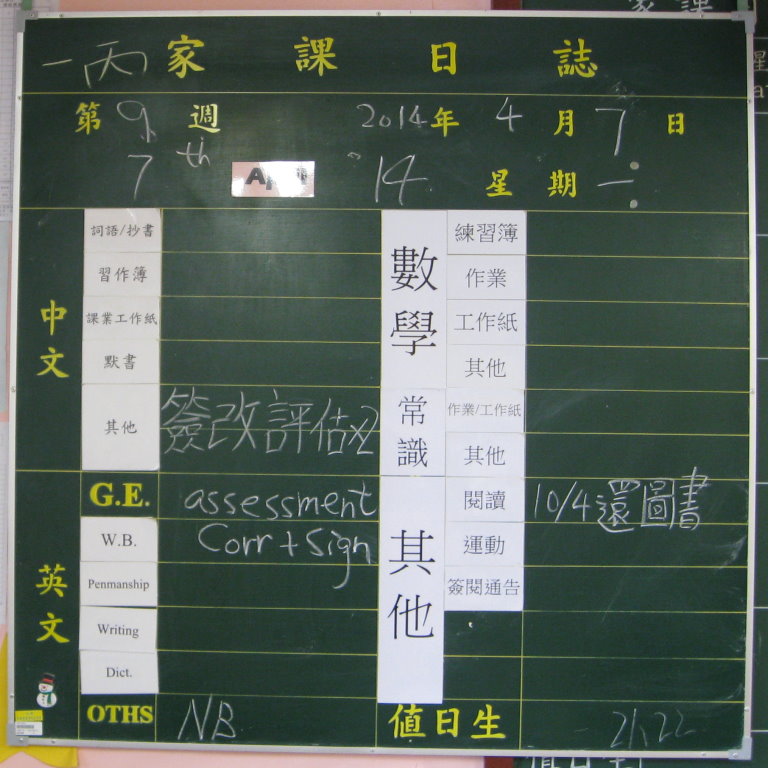 一丙 家 課 日 誌
第 9 週 2014年 4 月 7 日
7th April 14 星 期 一
中文
詞語/抄書
習作簿
課業工作紙
默書
其他 簽改評估x2
英文
G.E. assessment
Corr + Sign
W.B.
Penmanship
Writing
Dict.
OTHS NB
數學
練習簿
作業
工作紙
其他
常識
作業/工作紙
其他
其他
閱讀 10/4還圖書
運動
簽閱通告
值日生 21, 22